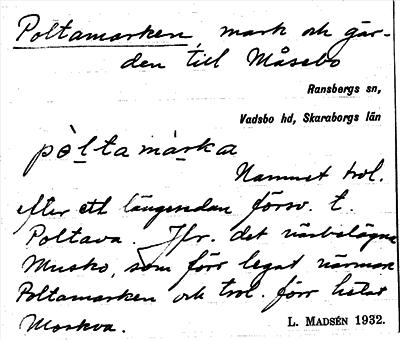 Poltamarken, mark och går-
den till Måsebo
Ransbergs sn,
Vadsbo hd, Skaraborgs län
pòltamàrka
Namnet trol.
efter ett längesedan försv. t.
Poltava. Jfr. det närbelägna
Musko, som förr legat närmare
Poltamarken och trol. förr hetat
Moskva.
L. MADSÉN 1932.